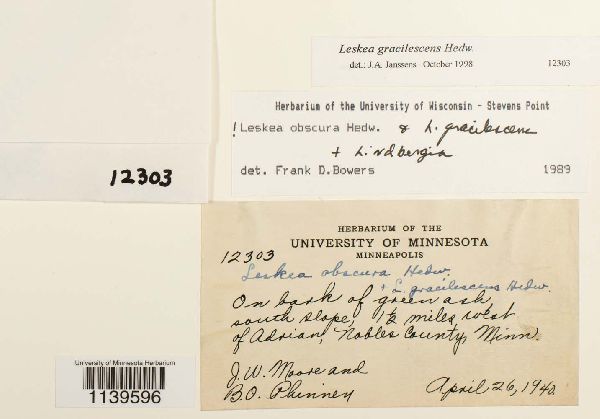 Leskea gracilescens Hedw.
det.: J.A. Janssens - October 1998 12303
Herbarium of the University of Wisconsin - Stevens Point
! Leskea obscura Hedw. & L. gracilescens
+ Lindbergia
det. Frank D.Bowers 1989
12303
HERBARIUM OF THE
UNIVERSITY OF MINNESOTA
MINNEAPOLIS
12303
Leskea obscura Hedw.
+ L. gracilescens Hedw.
On bark of green ash,
south slope, 1½ miles west
of Adrian, Nobles County, Minn.
J.W. Moore and
B.O. Phinney April 26, 1940.
University of Minnesota Herbarium
1139596